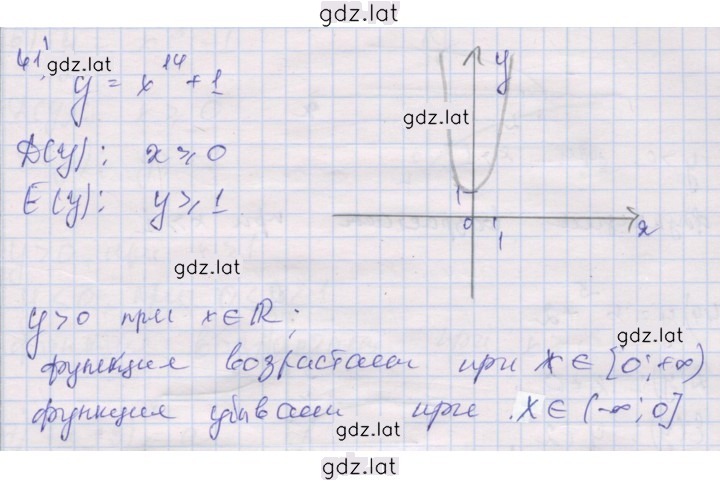 gdz.lat
41)
gdz.lat
y = x^14 + 1
gdz.lat
D(y): x ⩾ 0
E(y): y ⩾ 1
y
1
0
1
x
gdz.lat
y > 0 при x ∈ ℝ;
gdz.lat
функция возрастает при x ∈ [0; +∞)
функция убывает при x ∈ (-∞; 0]
gdz.lat
gdz.lat